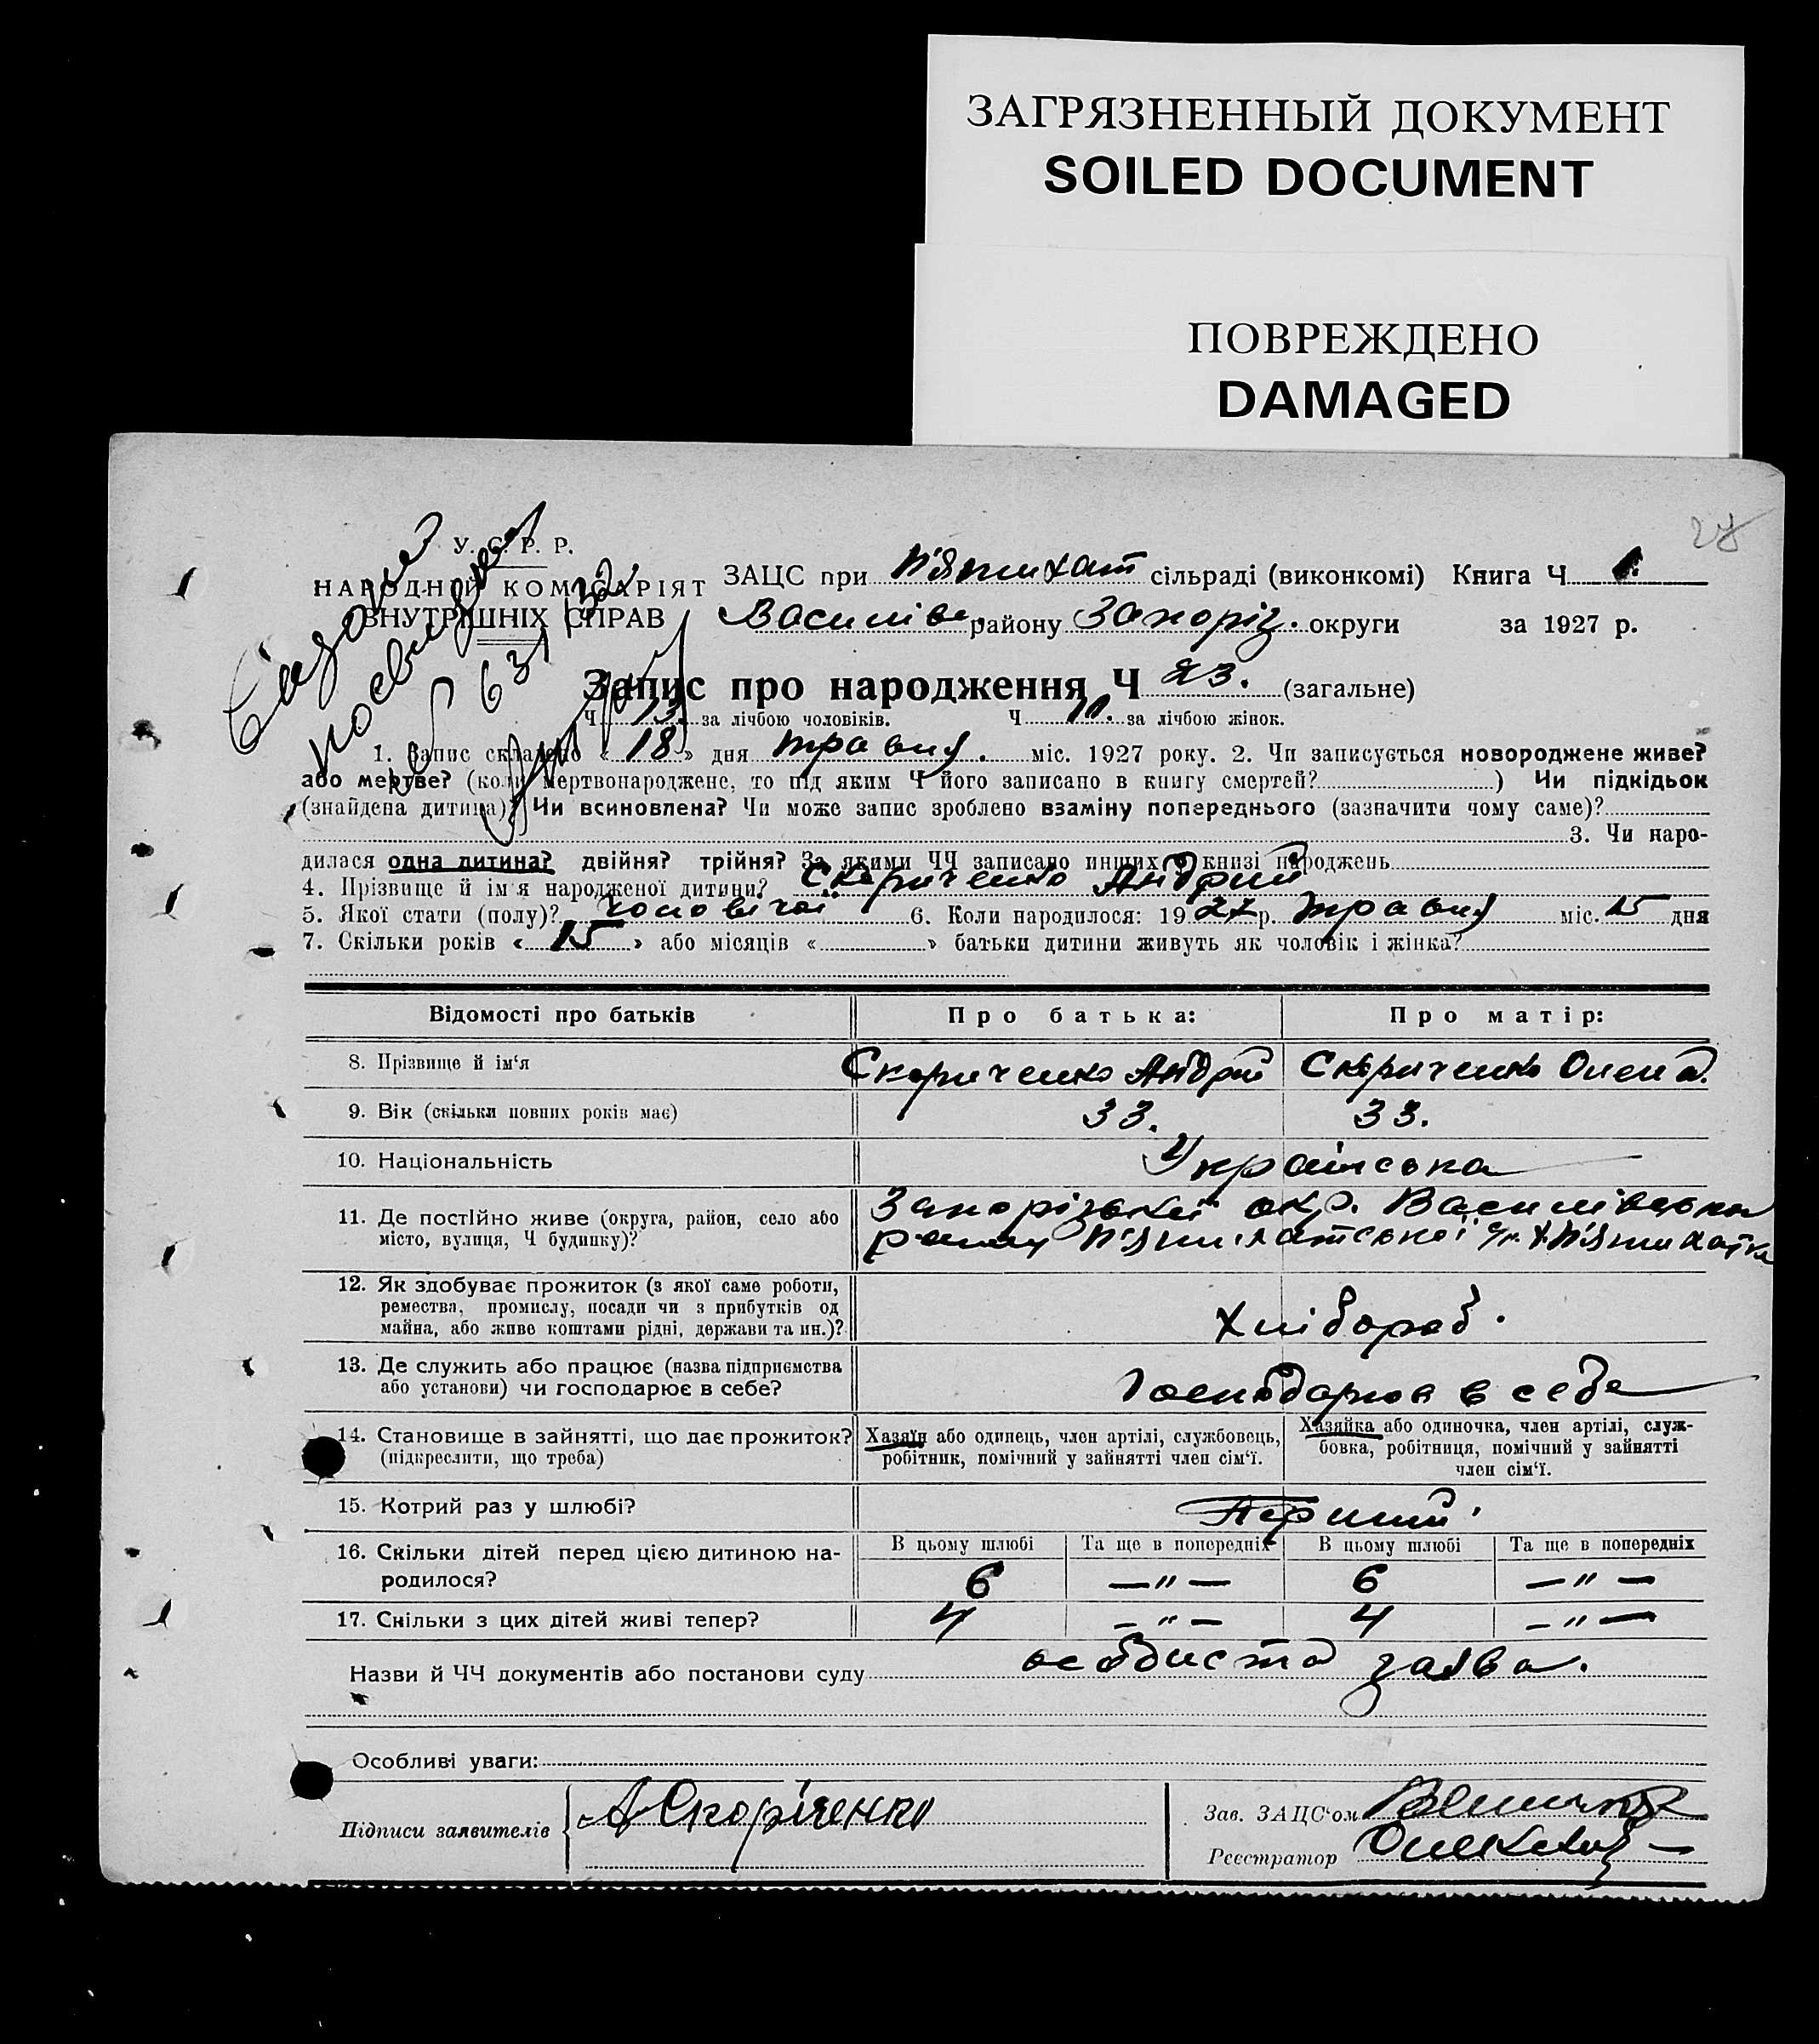 ЗАГРЯЗНЕННЫЙ ДОКУМЕНТ
SOILED DOCUMENT
ПОВРЕЖДЕНО
DAMAGED
28
У. С. Р. Р.
НАРОДНІЙ КОМІСАРІЯТ
ВНУТРІШНІХ СПРАВ
ЗАЦС при П'ятихат сільраді (виконкомі) Книга Ч 1.
Василівс. району Запоріз. округи за 1927 р.
Запис про народження Ч 23. (загальне)
Ч 13. за лічбою чоловіків. Ч 10. за лічбою жінок.
1. Запис складено «18» дня травня. міс. 1927 року. 2. Чи записується новороджене живе?
або мертве? (коли мертвонароджене, то під яким Ч його записано в книгу смертей? ) Чи підкідьок
(знайдена дитина)? Чи всиновлена? Чи може запис зроблено взаміну попереднього (зазначити чому саме)?
3. Чи наро-
дилася одна дитина? двійня? трійня? За якими ЧЧ записано инших в книзі народжень
4. Прізвище й ім'я народженої дитини? Скориченко Андрий
5. Якої стати (полу)? чоловічої 6. Коли народилося: 1927 р. травня міс. 15 дня
7. Скільки років «15» або місяців « » батьки дитини живуть як чоловік і жінка?
Відомості про батьків Про батька: Про матір:
8. Прізвище й ім'я Скориченко Андрій Скориченко Олена.
9. Вік (скільки повних років має) 33. 33.
10. Національність Українська
11. Де постійно живе (округа, район, село або Запорізької окр. Василівсько
місто, вулиця, Ч будинку)? району П'ятихатської с/р. х. П'ятихатка
12. Як здобуває прожиток (з якої саме роботи,
ремества, промислу, посади чи з прибутків од
майна, або живе коштами рідні, держави та ин.)? Хлібороб.
13. Де служить або працює (назва підприємства
або установи) чи господарює в себе? Господарює в себе
14. Становище в зайнятті, що дає прожиток? Хазяїн або одинець, член артілі, службовець, Хазяйка або одиночка, член артілі, служ-
(підкреслити, що треба) робітник, помічний у зайнятті член сім'ї. бовка, робітниця, помічний у зайнятті
член сім'ї.
15. Котрий раз у шлюбі? Перший.
16. Скільки дітей перед цією дитиною на- В цьому шлюбі Та ще в попередніх В цьому шлюбі Та ще в попередніх
родилося? 6 —"— 6 —"—
17. Скільки з цих дітей живі тепер? 4 —"— 4 —"—
Назви й ЧЧ документів або постанови суду особиста заява.
Особливі уваги:
Підписи заявителів А Скоріченко
Зав. ЗАЦС'ом
Реєстратор